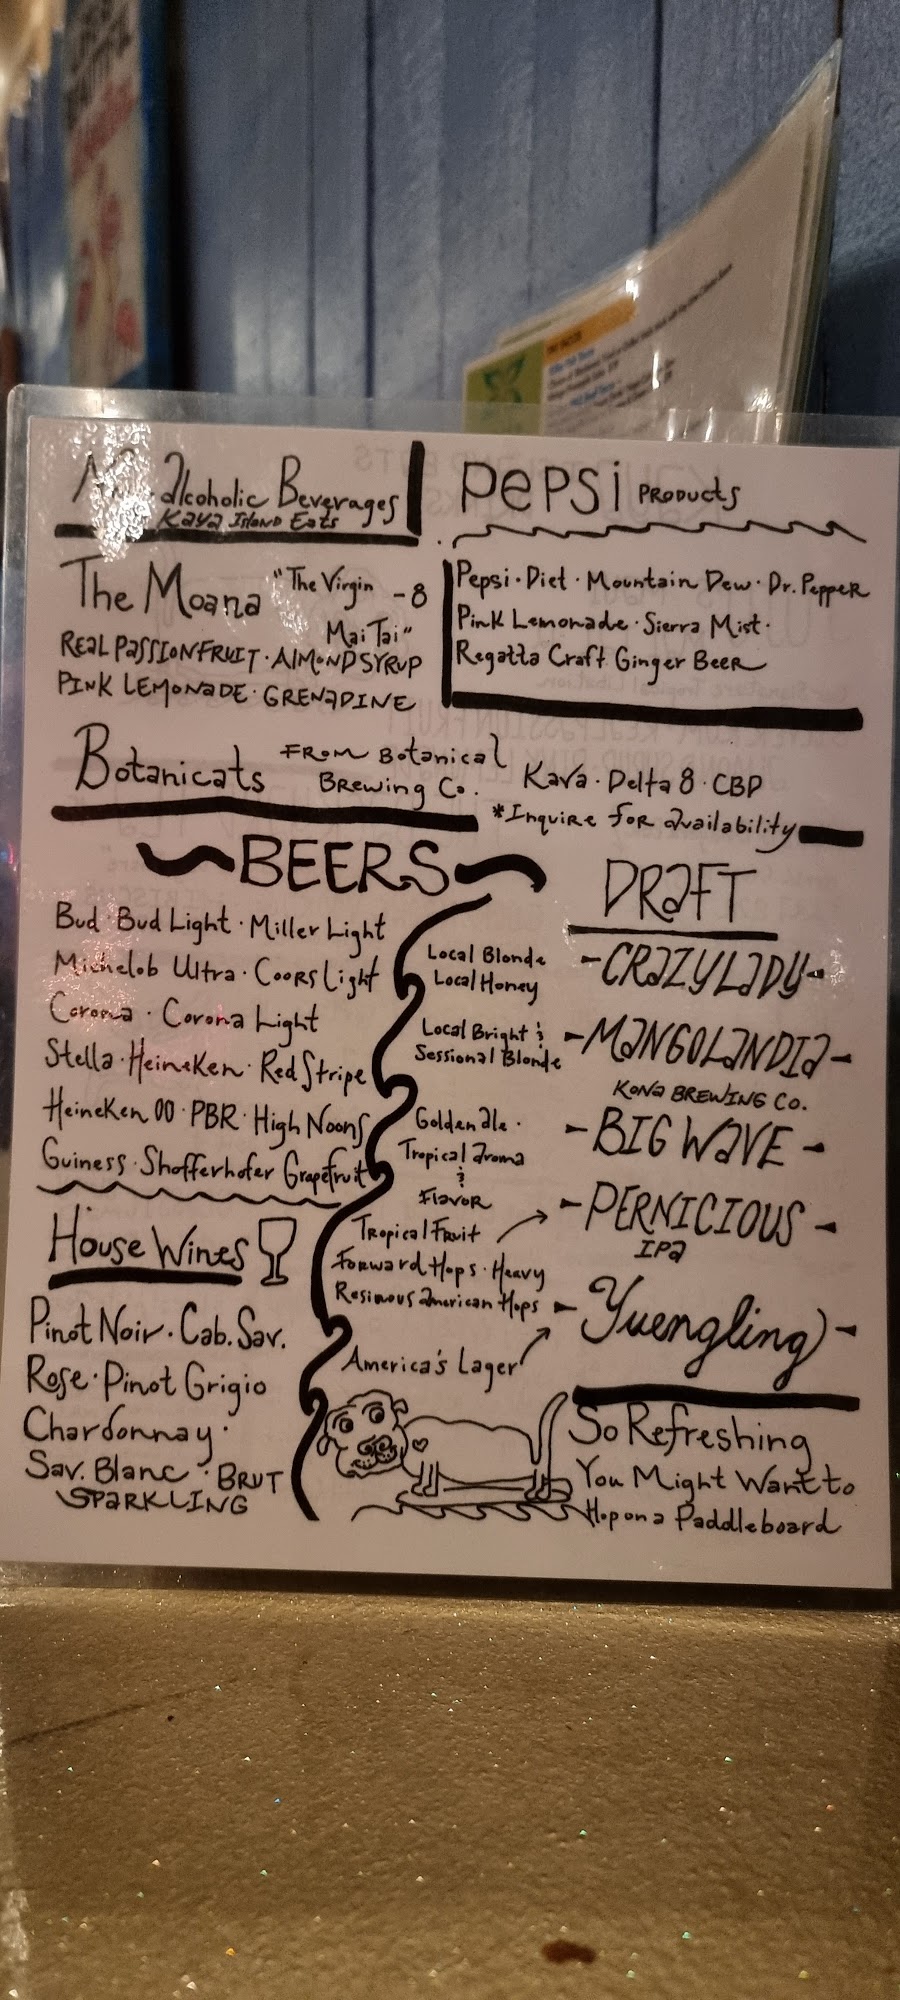 alcoholic Beverages
Kaya Island Eats
The Moana "The Virgin -8
Mai Tai"
REAL PASSIONFRUIT · ALMOND SYRUP
PINK LEMONADE · GRENADINE
Pepsi PRODUCTS
Pepsi · Diet · Mountain Dew · Dr. Pepper
Pink Lemonade · Sierra Mist ·
Regatta Craft Ginger Beer
Botanicats FROM Botanical
Brewing Co.
Kava · Delta 8 · CBD
*Inquire for availability
BEERS
Bud · Bud Light · Miller Light
Michelob Ultra · Coors Light
Corona · Corona Light
Stella · Heineken · Red Stripe
Heineken 00 · PBR · High Noons
Guiness · Shofferhofer Grapefruit
House Wines
Pinot Noir · Cab. Sav.
Rose · Pinot Grigio
Chardonnay ·
Sav. Blanc · BRUT
SPARKLING
DRAFT
Local Blonde
Local Honey
- CRAZY LADY -
Local Bright &
Sessional Blonde
- MANGOLANDIA -
KONA BREWING CO.
- BIG WAVE -
Golden ale ·
Tropical aroma
&
Flavor
- PERNICIOUS -
IPA
Tropical Fruit
Forward Hops · Heavy
Resinous American Hops
- Yuengling -
America's Lager
So Refreshing
You Might Want to
Hop on a Paddleboard